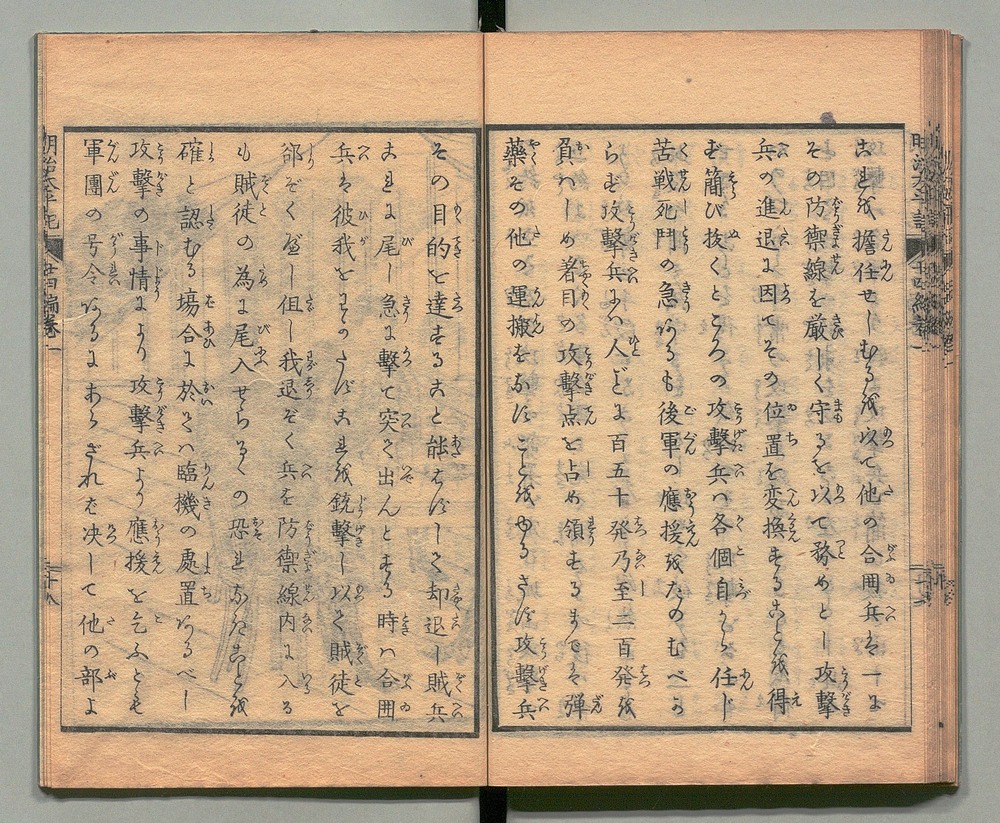 これを擔任せしむるを以て他の合囲兵は一に
その防禦線を厳しく守るを以て務めとし攻撃
兵の進退に因てその位置を変換することを得
む簡び抜くところの攻撃兵ハ各個自から任じ
苦戦死門の急あるも後軍の應援をたのむべか
らず攻撃兵にハ人ごとに百五十発乃至二百発を
負ハしめ着目の攻撃点を占め領するまでは弾
藥その他の運搬をなすことをゆるさず攻撃兵
その目的を達すること能はずして却退し賊兵
これに尾し急に撃て突て出んとする時ハ合囲
兵は彼我をわかたずこれを銃撃し以て賊徒を
郤ぞくべし但し我退ぞく兵を防禦線内に入る
も賊徒の為に尾入せらるるの恐れなきことを
確と認むる場合に於てハ臨機の處置あるべし
攻撃の事情により攻撃兵より應援を乞ふとも
軍團の号令あるにあらざれば决して他の部よ
明治太平記
廿四編巻一